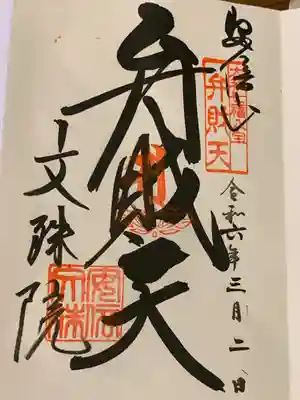 安倍山
弁財天
令和六年三月二日
弁財天
文殊院